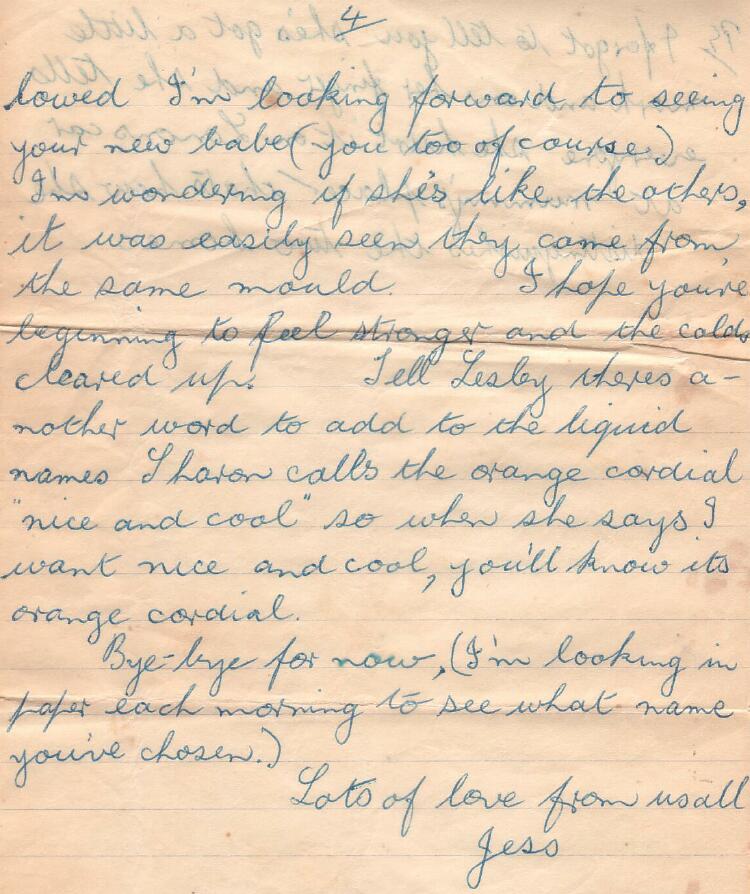 4
lowed I'm looking forward to seeing
your new babe (you too of course.)
I'm wondering if she's like the others,
it was easily seen they came from
the same mould. I hope you're
beginning to feel stronger and the colds
cleared up. Tell Lesley theres a-
nother word to add to the liquid
names Sharon calls the orange cordial
"nice and cool" so when she says I
want nice and cool, you'll know its
orange cordial.
Bye-bye for now, (I'm looking in
paper each morning to see what name
you've chosen.)
Lots of love from us all
Jess